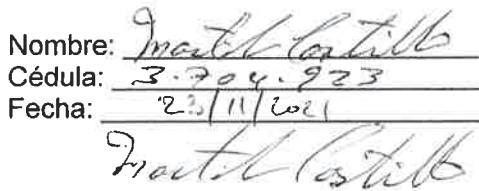 Nombre: Castillo
Cédula: 3-704-923
Fecha: 23/11/2021
Castillo